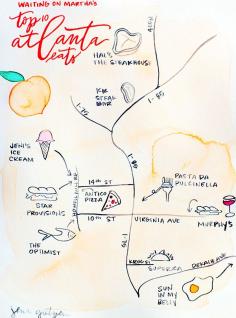 WAITING ON MARTHA'S
top 10
atlanta
eats
HAL'S
THE STEAKHOUSE
KR
STEAK
BAR
I-75
I-85
I-85
JENI'S
ICE
CREAM
14TH ST
ANTICO
PIZZA
10TH ST
STAR
PROVISIONS
THE
OPTIMIST
PASTA DA
PULCINELLA
VIRGINIA AVE
MURPHY'S
I-75
KROG ST
SUPERICA
DEKALB AVE
SUN
IN MY
BELLY